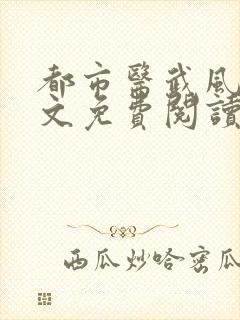 都市醫武風
文免費閱讀
西瓜炒哈密瓜